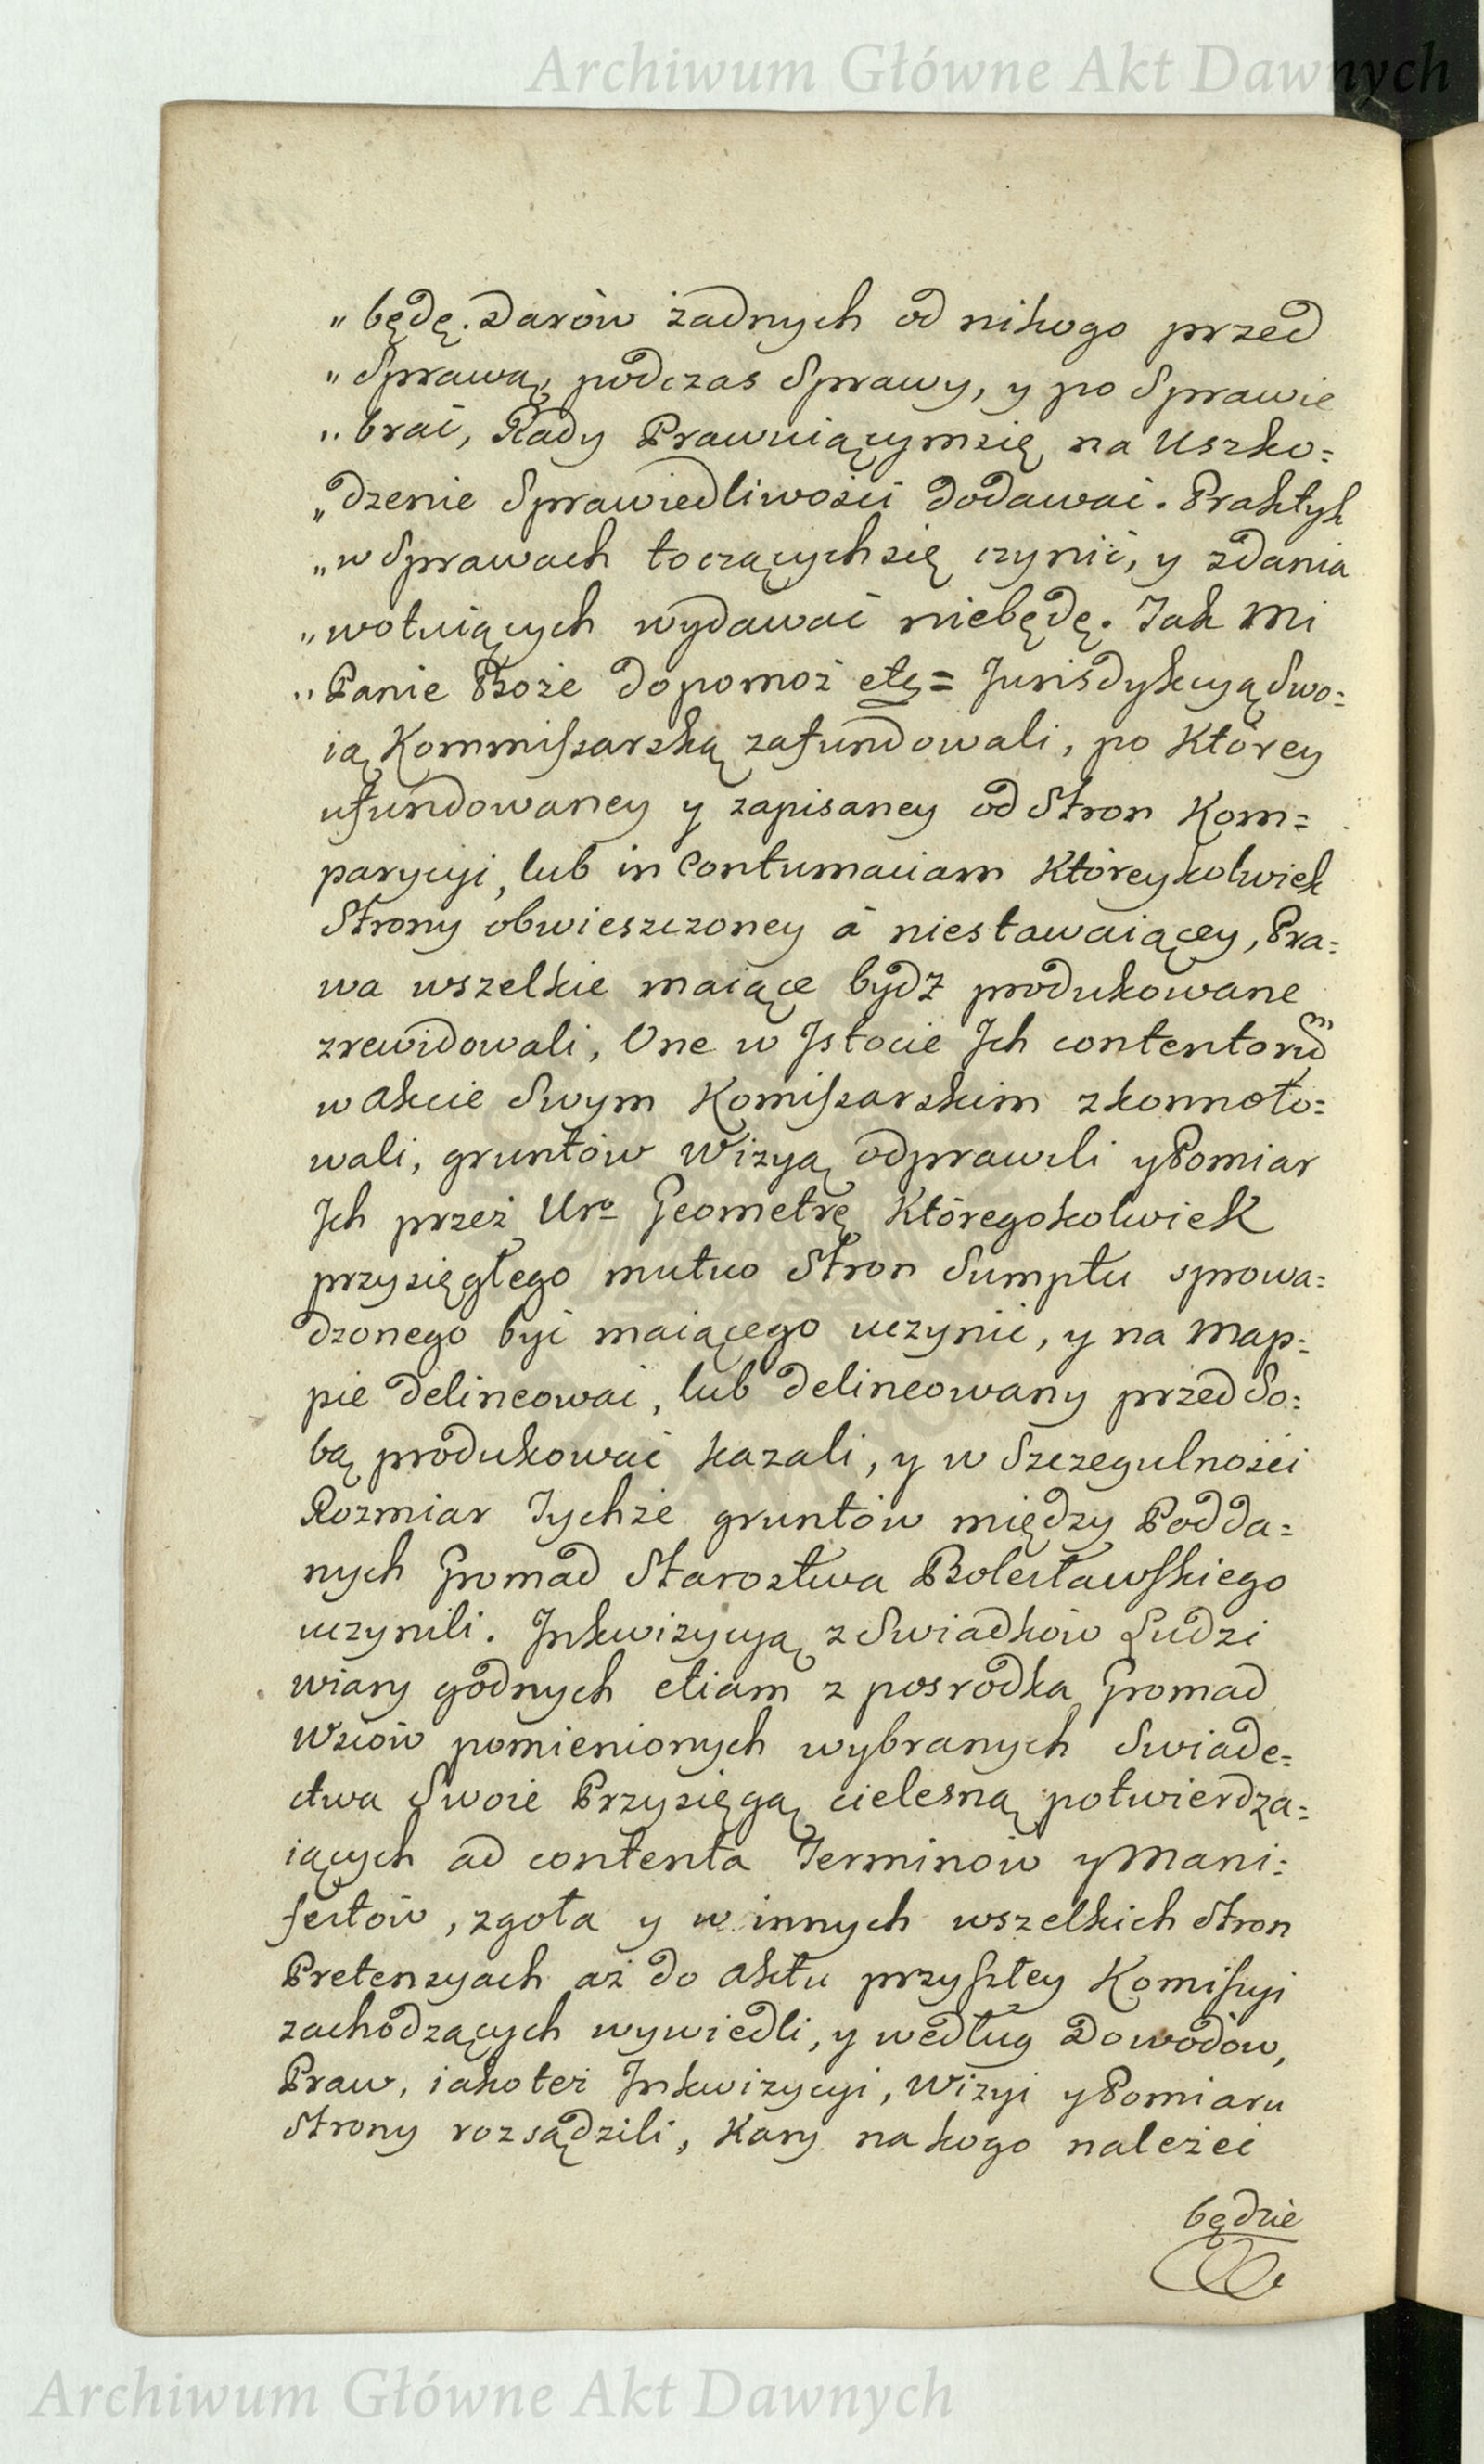 Archiwum Główne Akt Dawnych
„ będę. Darów żadnych od nikogo przed
„ Sprawą, podczas Sprawy, y po Sprawie
„ brać, Rady Prawuiącymsię na Uszko=
„ dzenie Sprawiedliwości dodawać. Praktyk
„ w Sprawach toczącychsię czynić, y zdania
„ wotuiących wydawać niebędę. Tak Mi
„ Panie Boże dopomoż etc= Jurisdykcyą Swo=
ią Kommissarską zafundowali, po Którey
ufundowaney y zapisaney od Stron Kom=
parycyi, lub in Contumaciam Którejkolwiek
Strony obwieszczoney á niestawaiącey, Pra=
wa wszelkie maiące bydź produkowane
zrewidowali, One w Jstocie Jch contentorum
w akcie Swym Komissarskim zkonnoto=
wali, gruntów Wizyą odprawili y Pomiar
Jch przez Uro Geometrę Któregokolwiek
przysięgłego mutuo Stron Sumptu sprowa=
dzonego być maiącego uczynić, y na Map=
pie delineować, lub delineowany przed So=
bą produkować kazali, y w Szczegulności
Rozmiar Tychże gruntów między Podda=
nych Gromad Starostwa Bolesławskiego
uczynili. Jnkwizycyą z Swiadków Ludzi
wiary godnych etiam z posrodka Gromad
Wsiów pomienionych wybranych Swiade=
ctwa Swoie Przysięgą cielesną potwierdza=
iących ad contenta Terminow y Mani=
festów, zgoła y w innych wszelkich Stron
Pretensyach aż do aktu przyszłey Komissyi
zachodzących wywiedli, y według Dowodow,
Praw, iakoteż Jnkwizycyi, Wizyi y Pomiaru
Strony rozsądzili, Kary na kogo należeć
będzie
Archiwum Główne Akt Dawnych